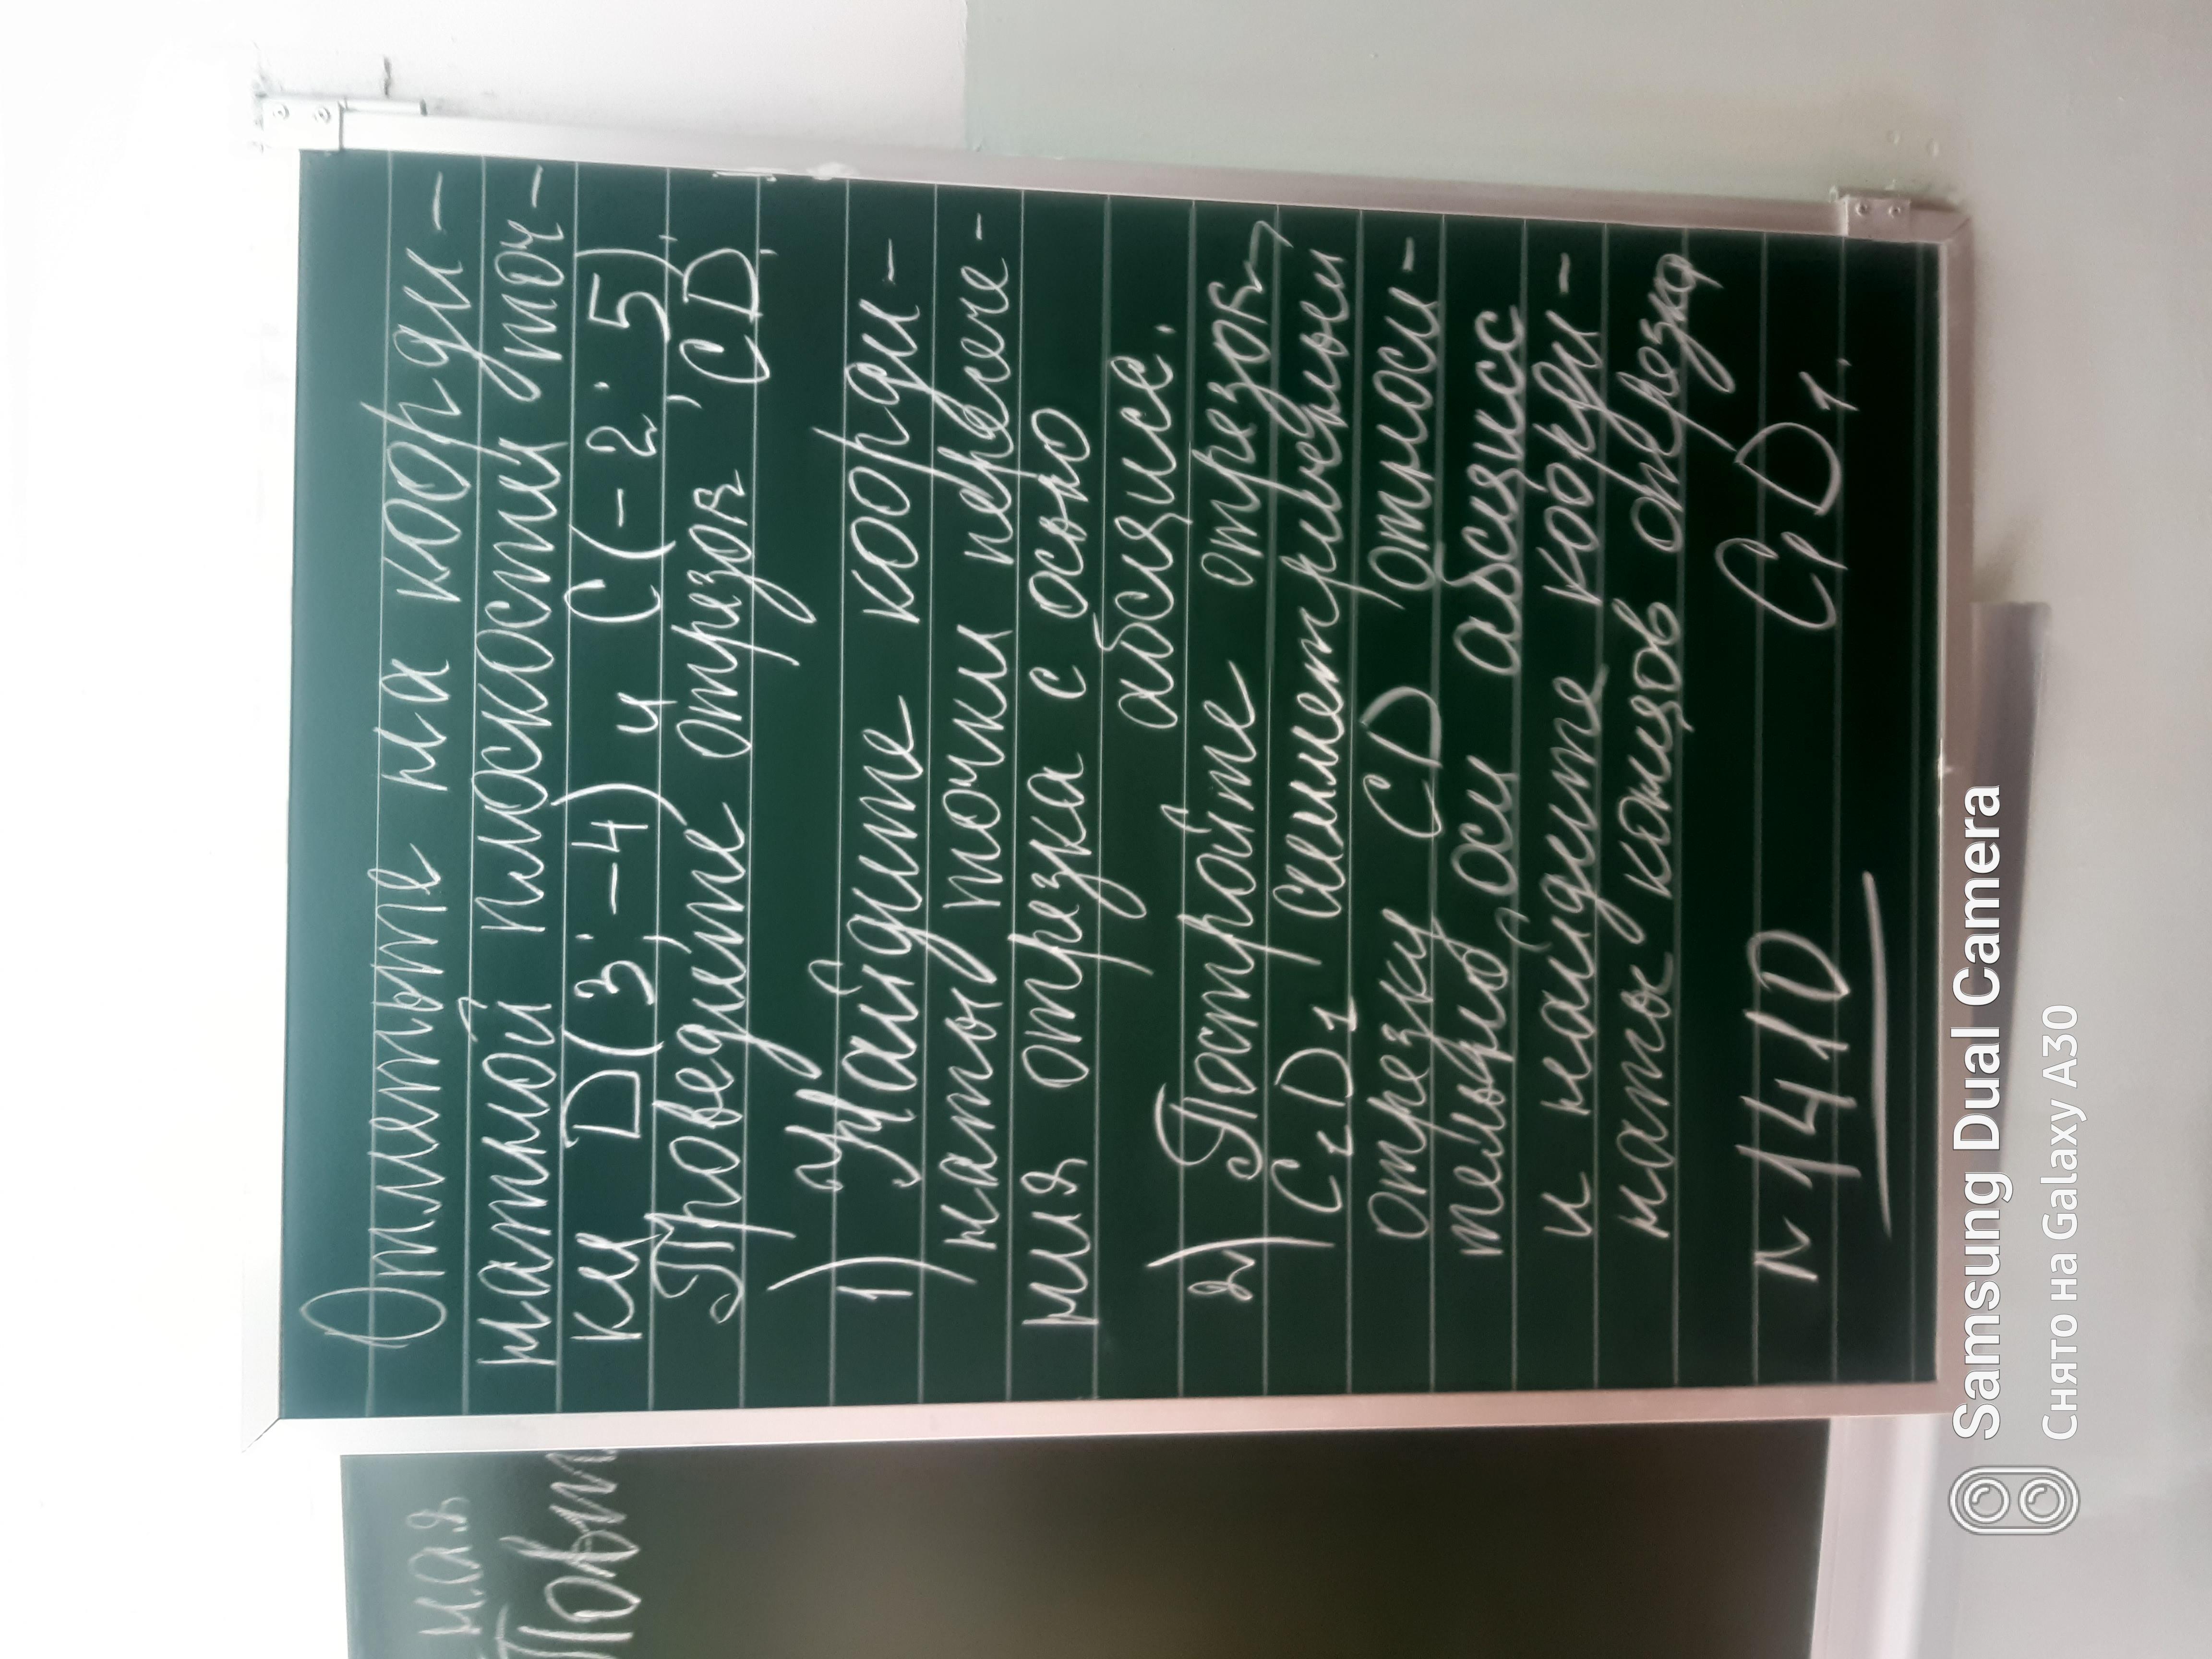 мая
Повт
Отметьте на коорди-
натной плоскости точ-
ки D(3;-4) и C(-2;5).
Проведите отрезок CD.
1) Найдите коорди-
наты точки пересече-
ния отрезка с осью
абсцисс.
2) Постройте отрезок
C1D1 симметричный
отрезку CD, относи-
тельно оси абсцисс
и найдите коорди-
наты концов отрезка
C1D1.
N 1410
Samsung Dual Camera
Снято на Galaxy A30